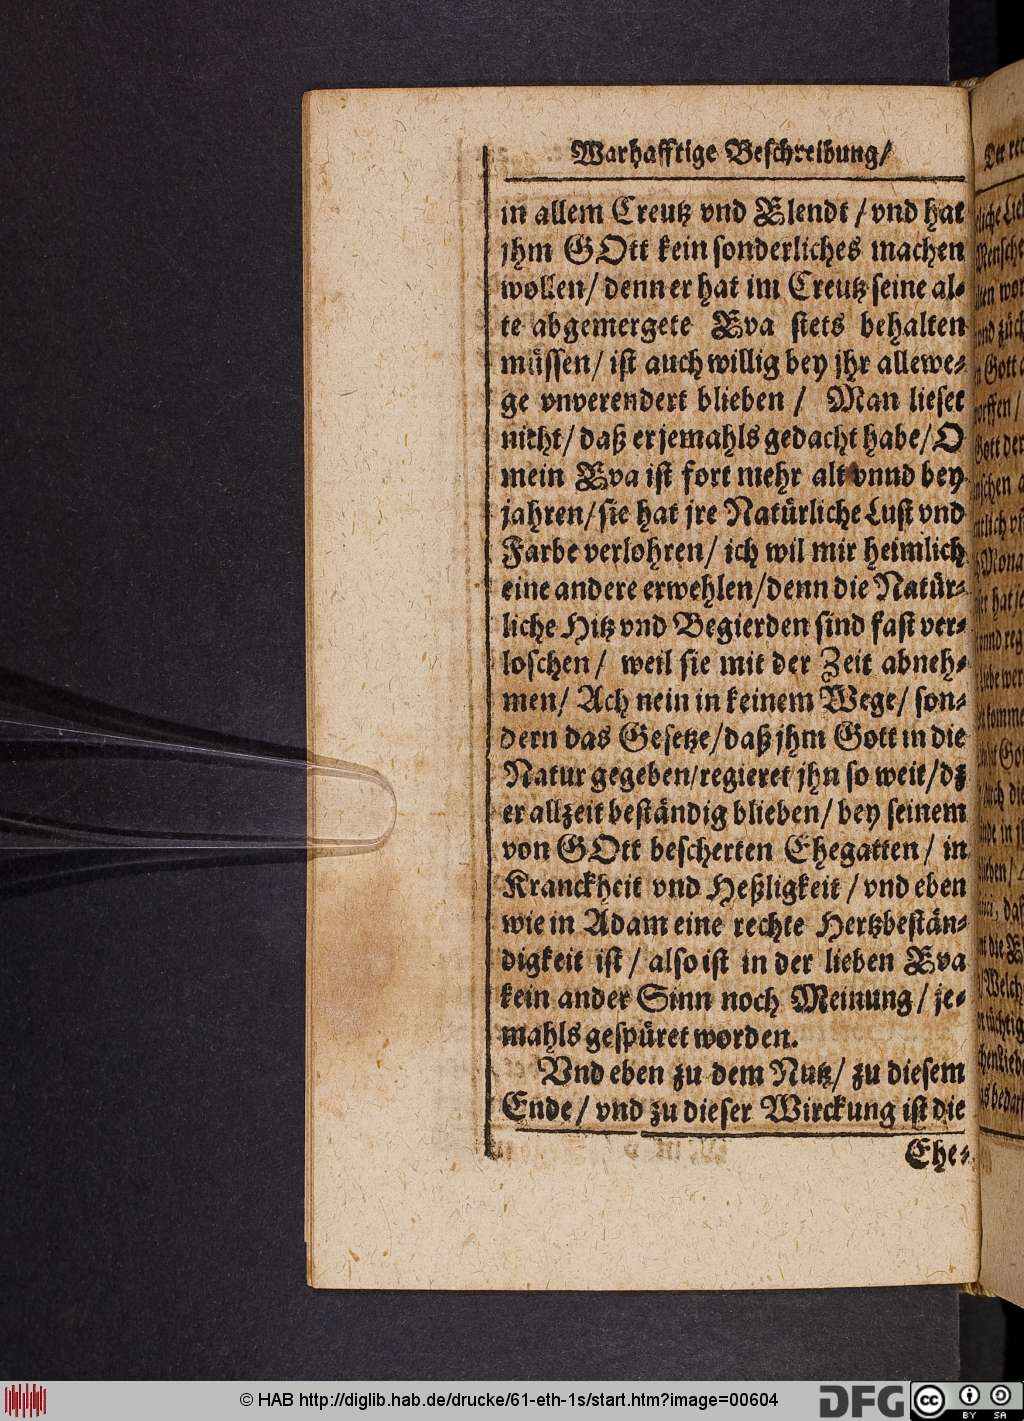 Warhafftige Beschreibung/
in allem Creutz vnd Elendt / vnd hat
jhm GOtt kein sonderliches machen
wollen/ denn er hat im Creutz seine al-
te abgemergete Eva stets behalten
müssen/ ist auch willig bey jhr allewe-
ge vnverendert blieben / Man lieset
nicht/ daß er jemahls gedacht habe/ O
mein Eva ist fort mehr alt vnnd bey
jahren/ sie hat jre Natürliche Lust vnd
Farbe verlohren/ ich wil mir heimlich
eine andere erwehlen/ denn die Natür-
liche Hitz vnd Begierden sind fast ver-
loschen / weil sie mit der Zeit abneh-
men/ Ach nein in keinem Wege/ son-
dern das Gesetze/ daß jhm Gott in die
Natur gegeben/ regieret jhn so weit/ dz
er allzeit beständig blieben/ bey seinem
von GOtt bescherten Ehegatten / in
Kranckheit vnd Heßligkeit / vnd eben
wie in Adam eine rechte Hertzbestän-
digkeit ist / also ist in der lieben Eva
kein ander Sinn noch Meinung/ je-
mahls gespüret worden.
Vnd eben zu dem Nutz/ zu diesem
Ende / vnd zu dieser Wirckung ist die
Ehe-
© HAB http://diglib.hab.de/drucke/61-eth-1s/start.htm?image=00604
DFG
cc BY SA